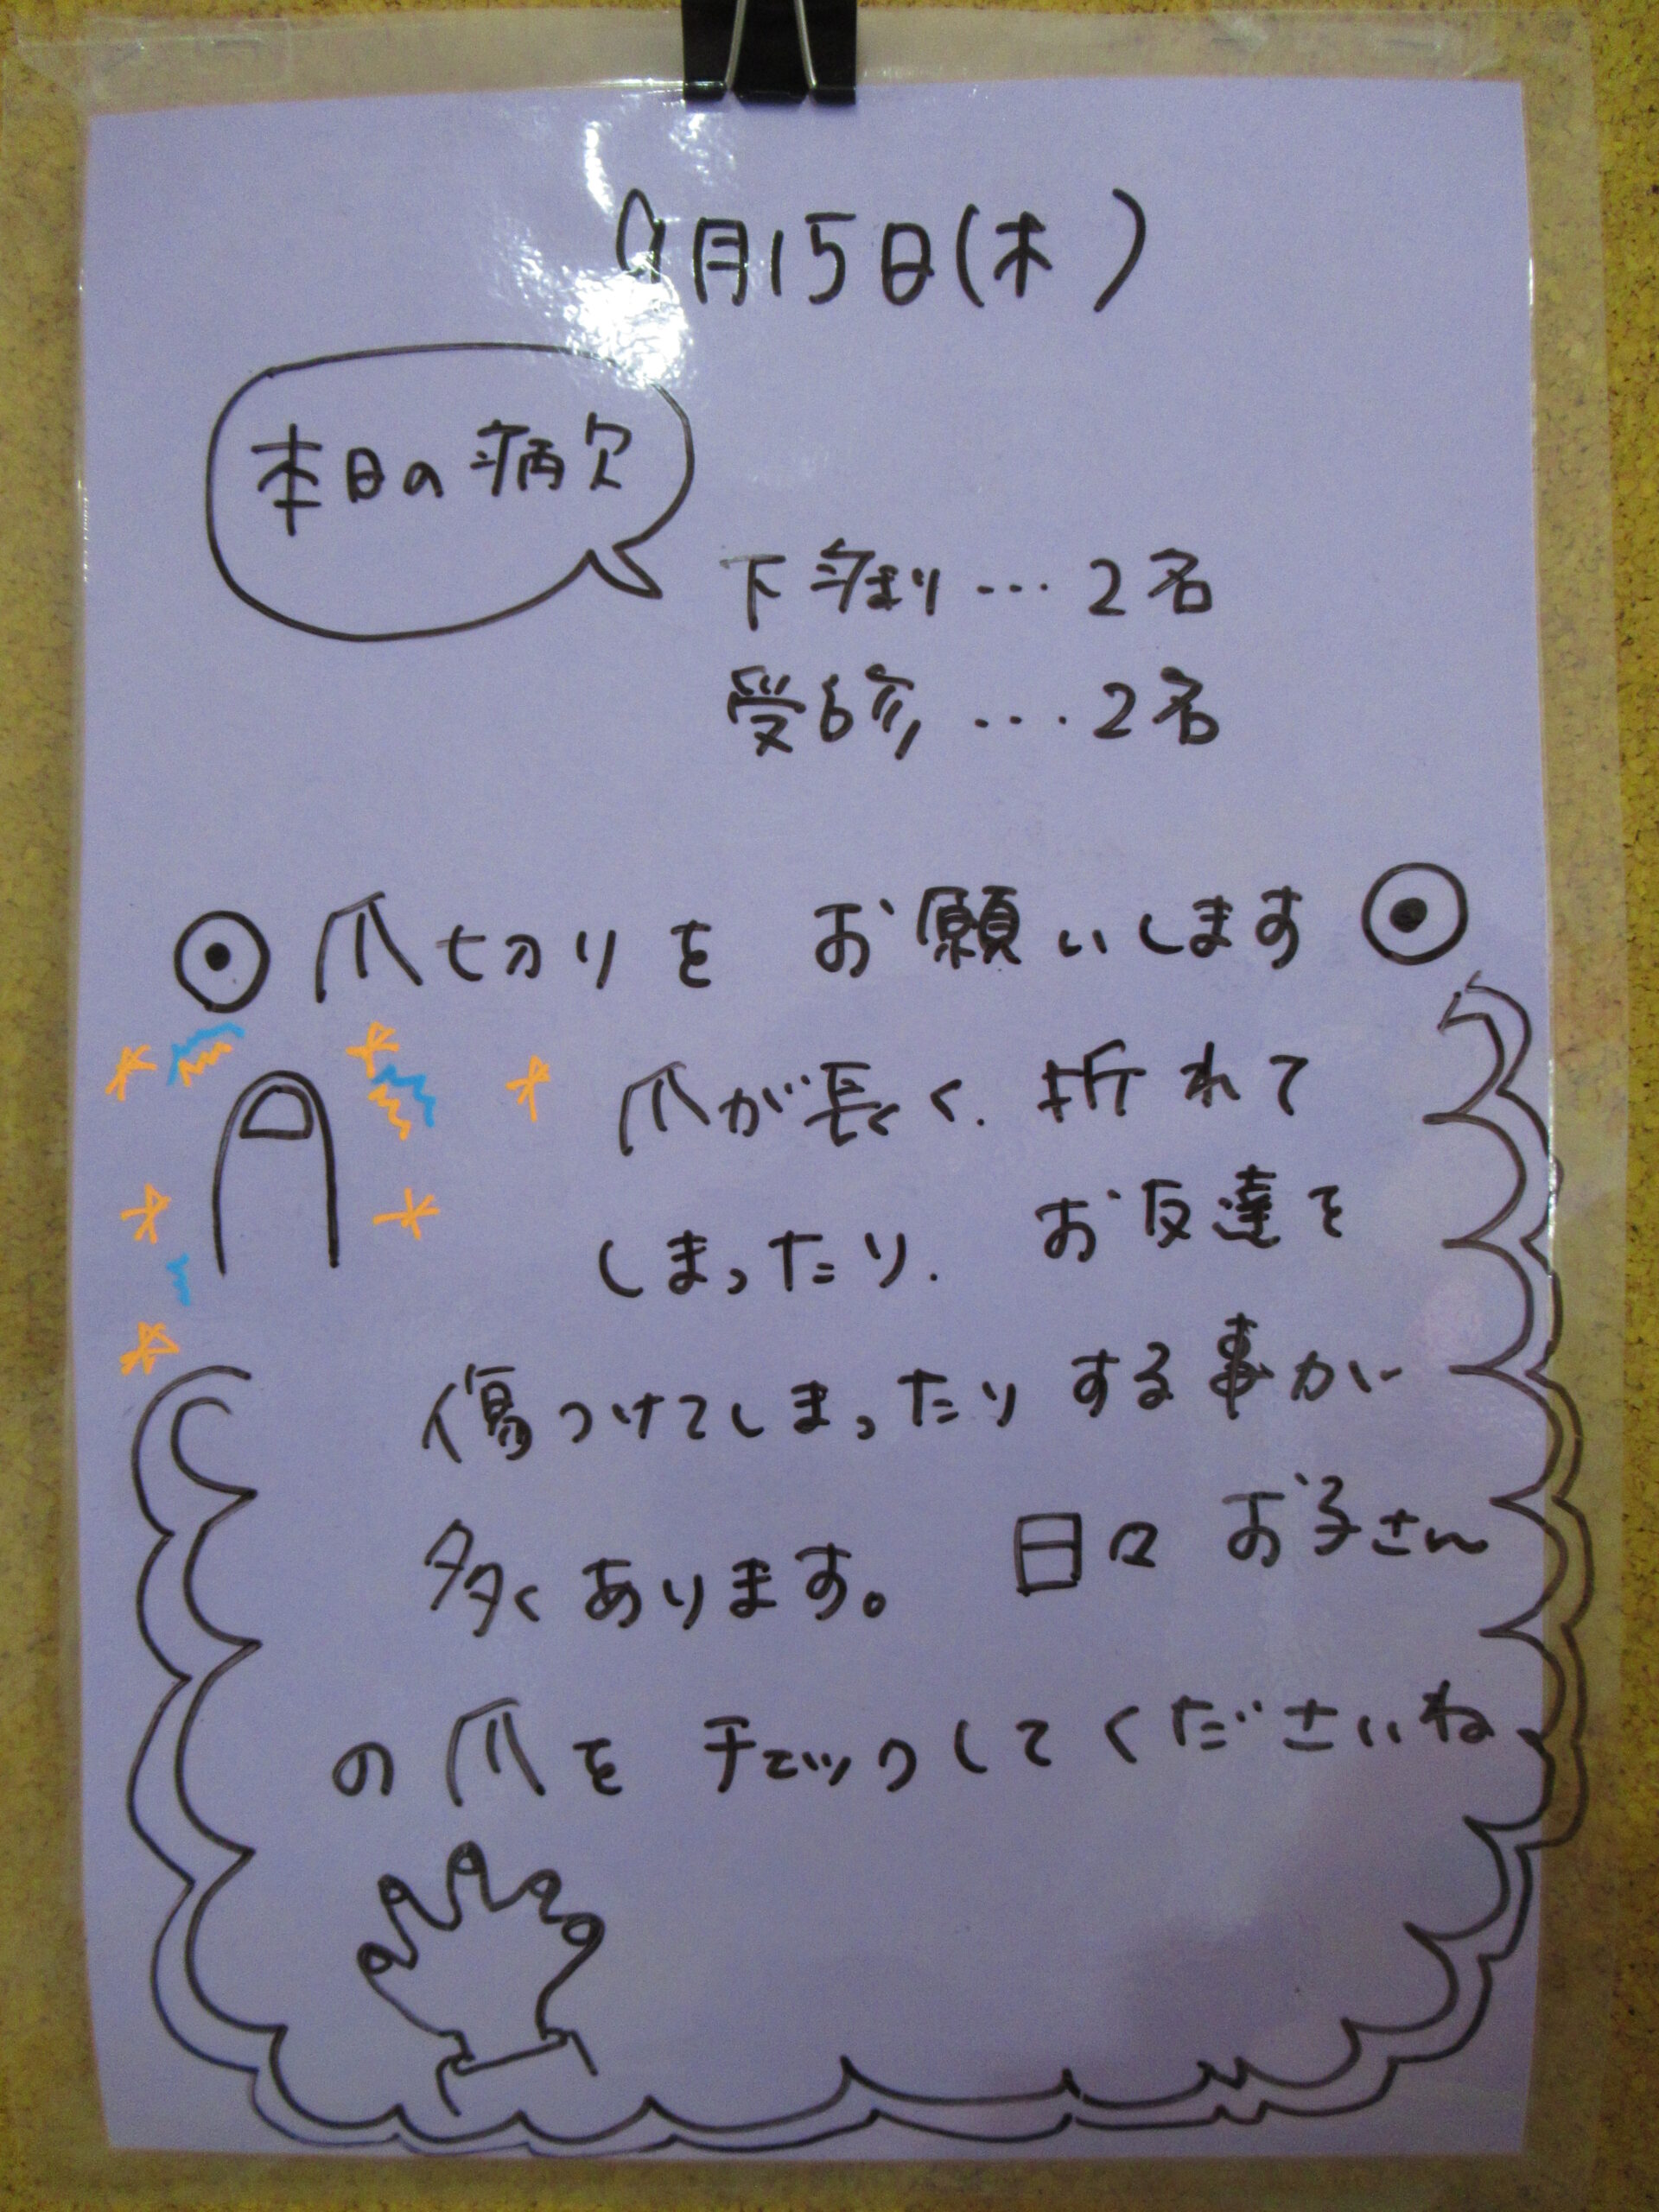 9月15日(木)
本日の病欠
下痢り…2名
受診…2名
爪切りを お願いします
爪が長く、折れて
しまったり、お友達を
傷つけてしまったりする事が
多くあります。 日々 お子さん
の爪を チェックしてくださいね